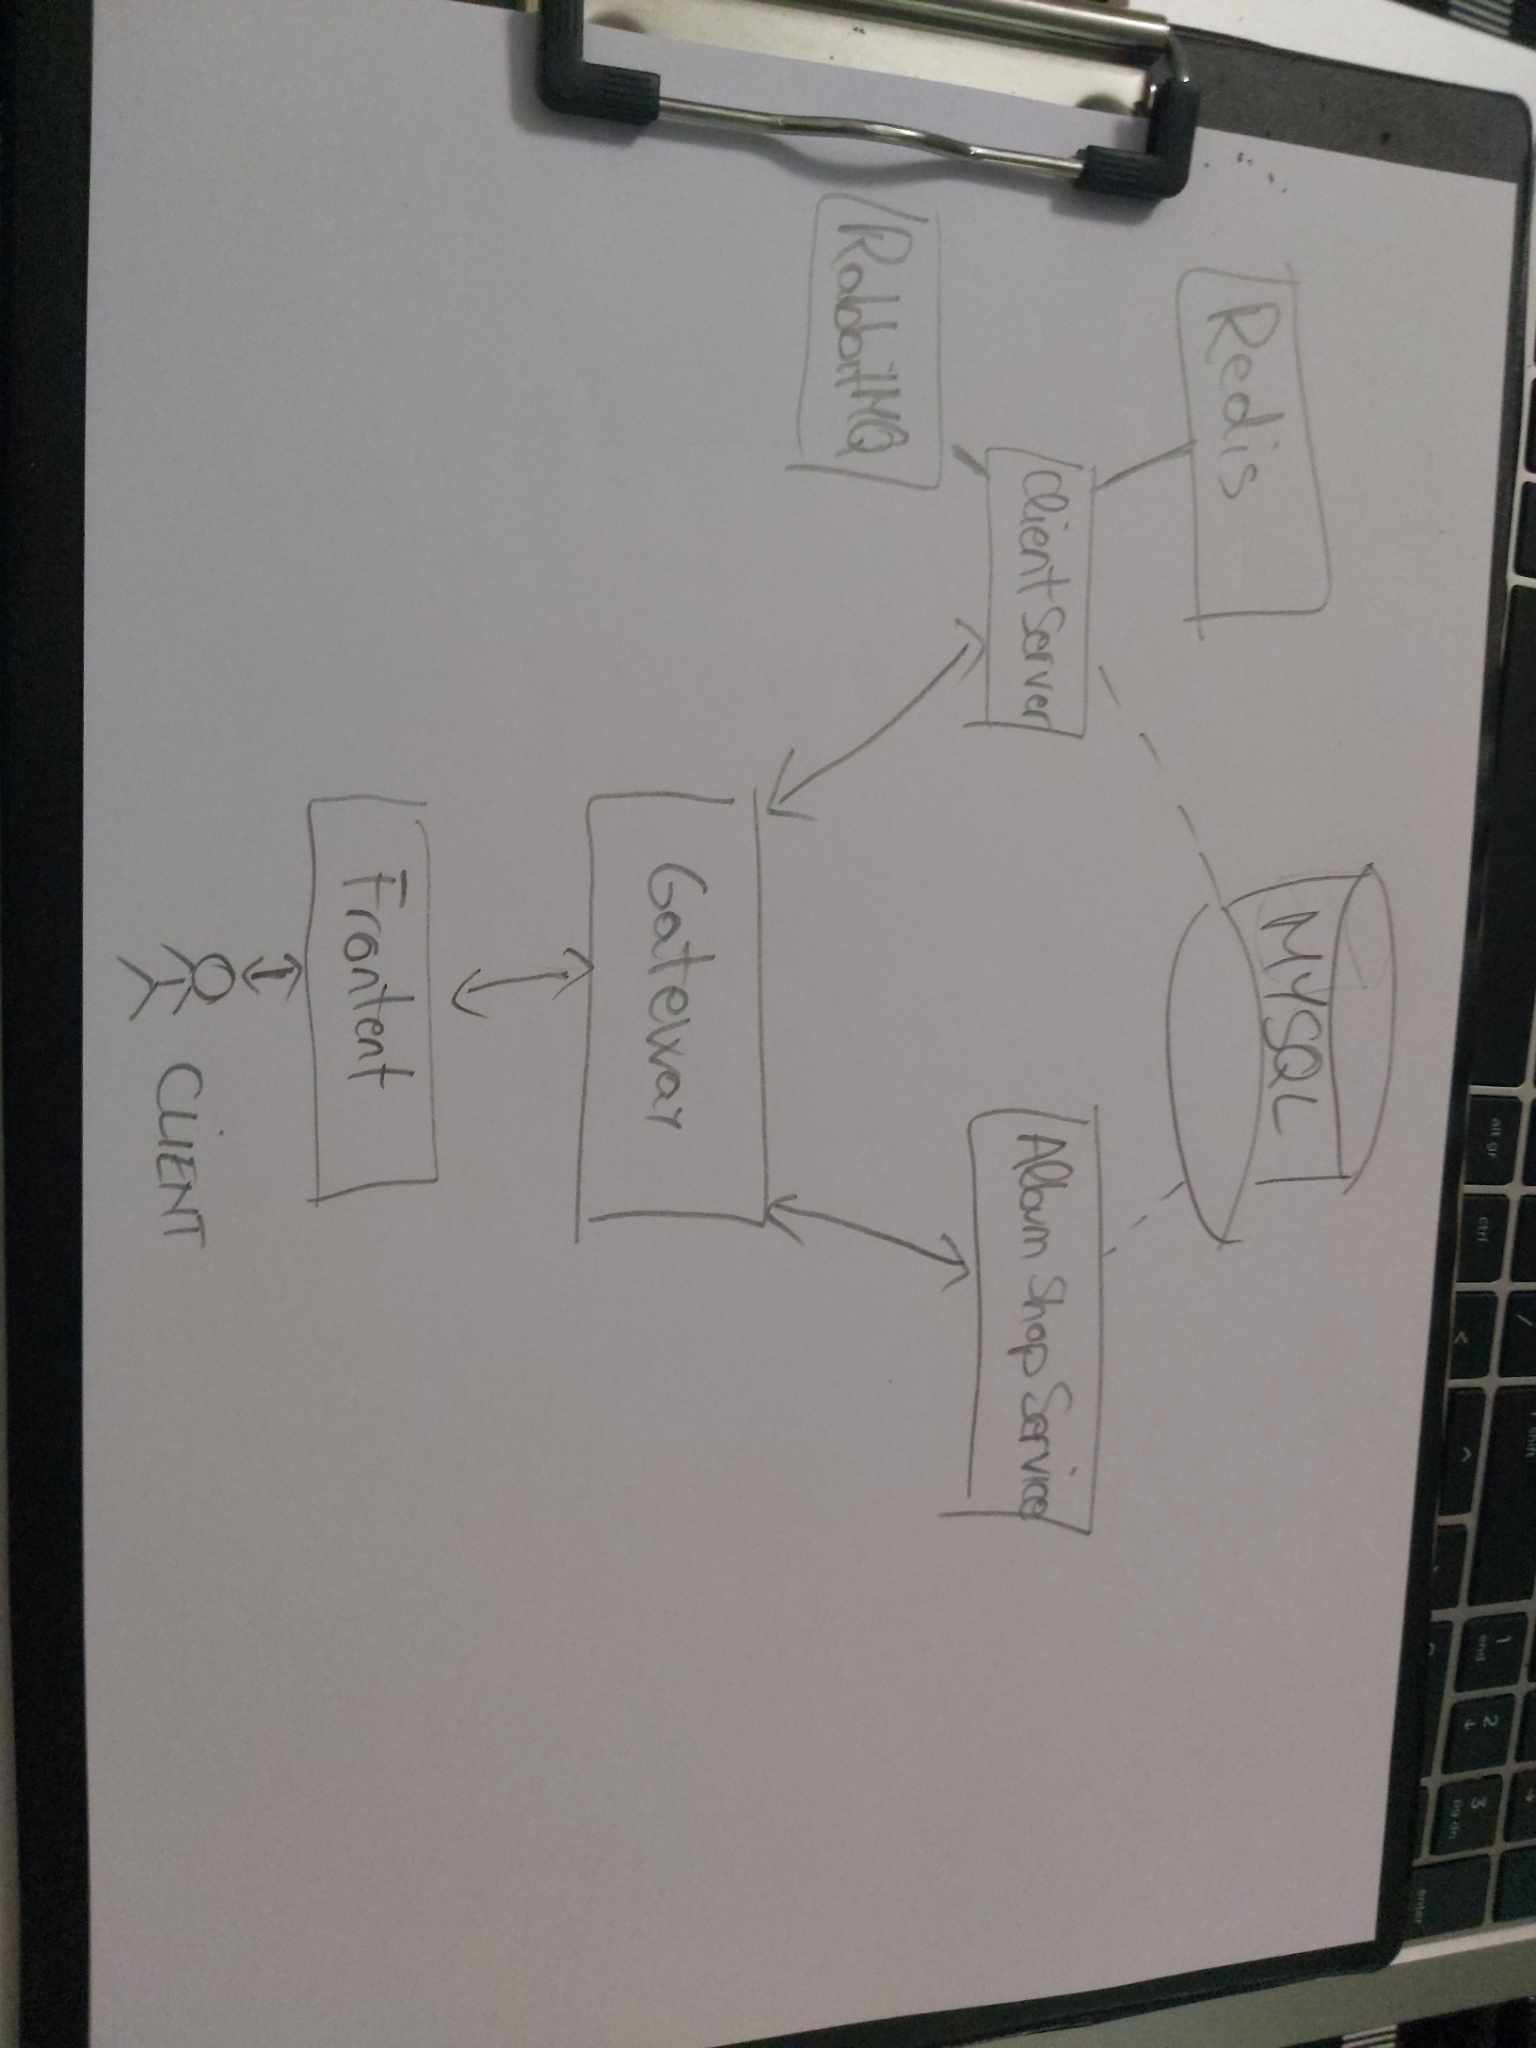 alt gr
ctrl
<
/
shift
^
1
end
2
↓
3
pg dn
enter
MYSQL
Redis
Client Server
Album Shop Service
RabbitMQ
Gateway
Frontent
CLIENT